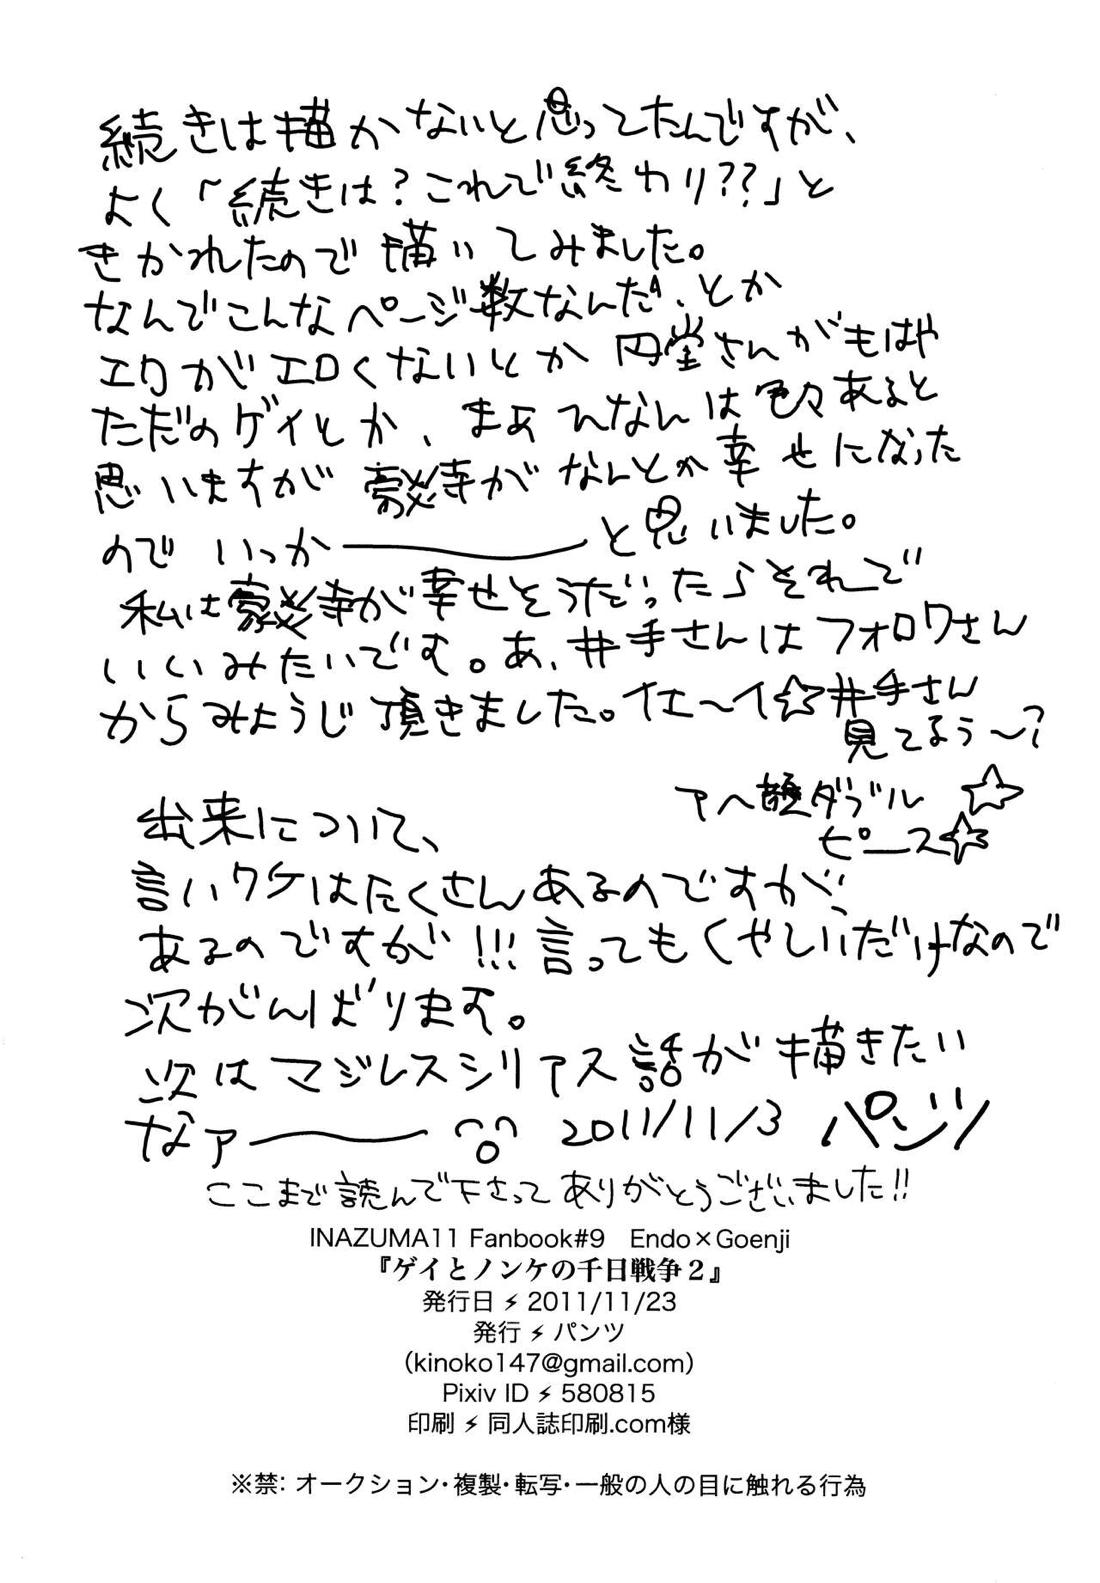 続きは描かないと思ってたんですが、
よく「続きは?これで終わり??」と
きかれたので描いてみました。
なんでこんなページ数なんだ、とか
エロがエロくないとか円堂さんがもはや
ただのゲイとか、まあひなんは色々あると
思いますが豪炎寺がなんとか幸せになった
のでいっか――――と思いました。
私は豪炎寺が幸せそうだったらそれで
いいみたいです。あ、井手さんはフォロワさん
からみようじ頂きました。イエ〜イ☆井手さん
見てるぅ〜?
アヘ顔ダブル☆
ピース☆
出来について、
言いワケはたくさんあるのですが、
あるのですが!!!言ってもくやしいだけなので
次がんばります。
次はマジレスシリアス話が描きたい
なァ―――― 2011/11/3 パンツ
ここまで読んで下さってありがとうございました!!
INAZUMA11 Fanbook#9 Endo×Goenji
『ゲイとノンケの千日戦争2』
発行日⚡2011/11/23
発行⚡パンツ
(kinoko147@gmail.com)
Pixiv ID⚡580815
印刷⚡同人誌印刷.com様
※禁: オークション・複製・転写・一般の人の目に触れる行為